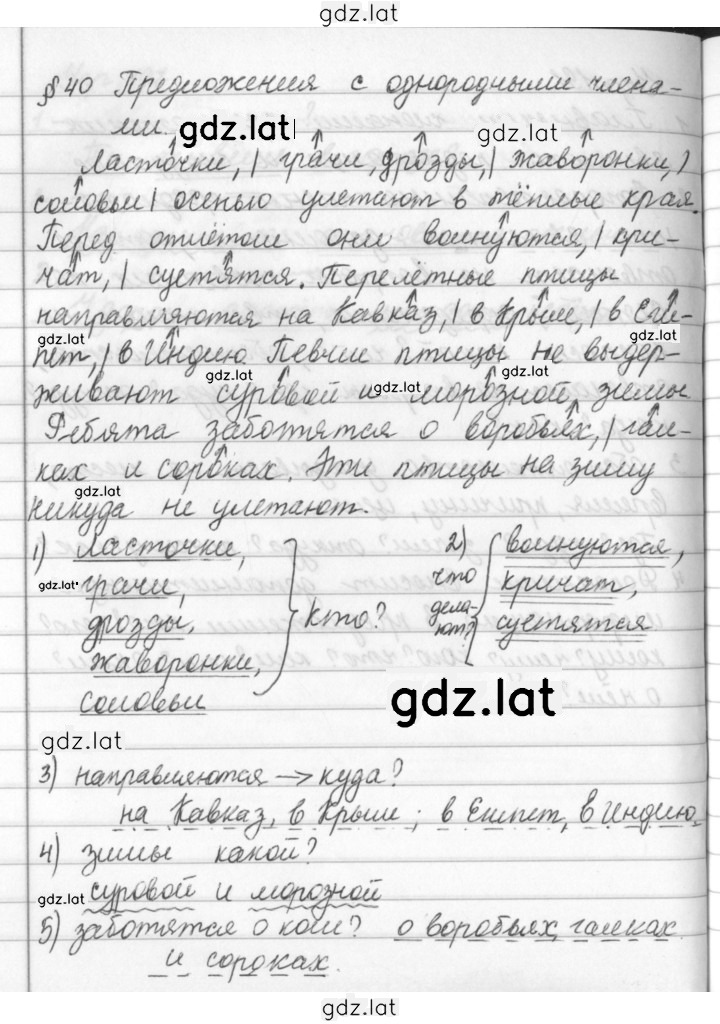 gdz.lat
§ 40 Предложения с однородными члена-
ми.
gdz.lat
gdz.lat
Ласточки, | грачи, дрозды, | жаворонки, |
соловьи | осенью улетают в тёплые края.
Перед отлётом они волнуются, | кри-
чат, | суетятся. Перелётные птицы
направляются на Кавказ, | в Крым, | в Еги-
gdz.lat
пет, | в Индию. Певчие птицы не выдер-
gdz.lat gdz.lat gdz.lat
живают суровой и морозной зимы.
Ребята заботятся о воробьях, | гал-
ках и сороках. Эти птицы на зиму
gdz.lat
никуда не улетают.
1) ласточки,
gdz.lat
грачи,
дрозды,
жаворонки,
соловьи
кто?
2) что
дела-
ют?
волнуются,
кричат,
суетятся
gdz.lat
gdz.lat
3) направляются → куда?
на Кавказ, в Крым; в Египет, в Индию
4) зимы какой?
gdz.lat
суровой и морозной
5) заботятся о ком? о воробьях, галках
и сороках.
gdz.lat